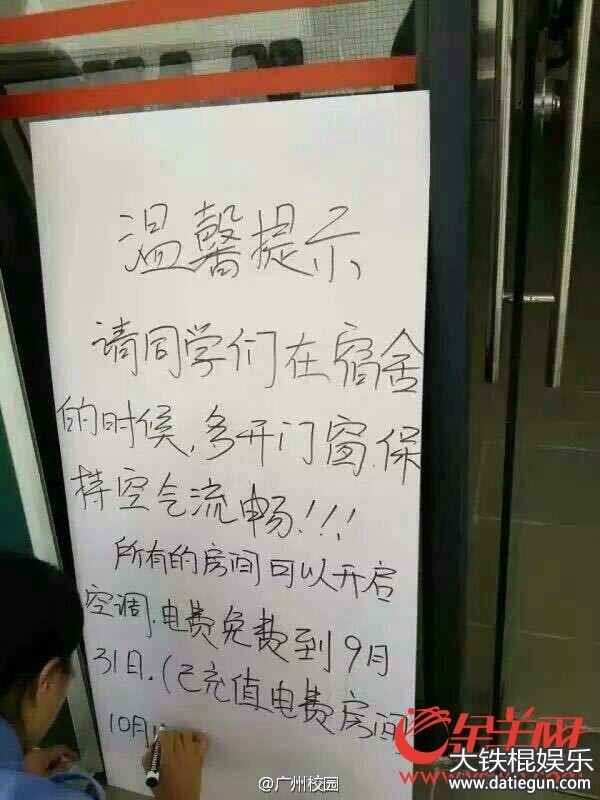 温馨提示
请同学们在宿舍
的时候,多开门窗.保
持空气流畅!!!
所有的房间可以开启
空调.电费免费到9月
31日.(已充值电费房间
10月
金羊网
大铁棍娱乐
www.datiegun.com
@广州校园